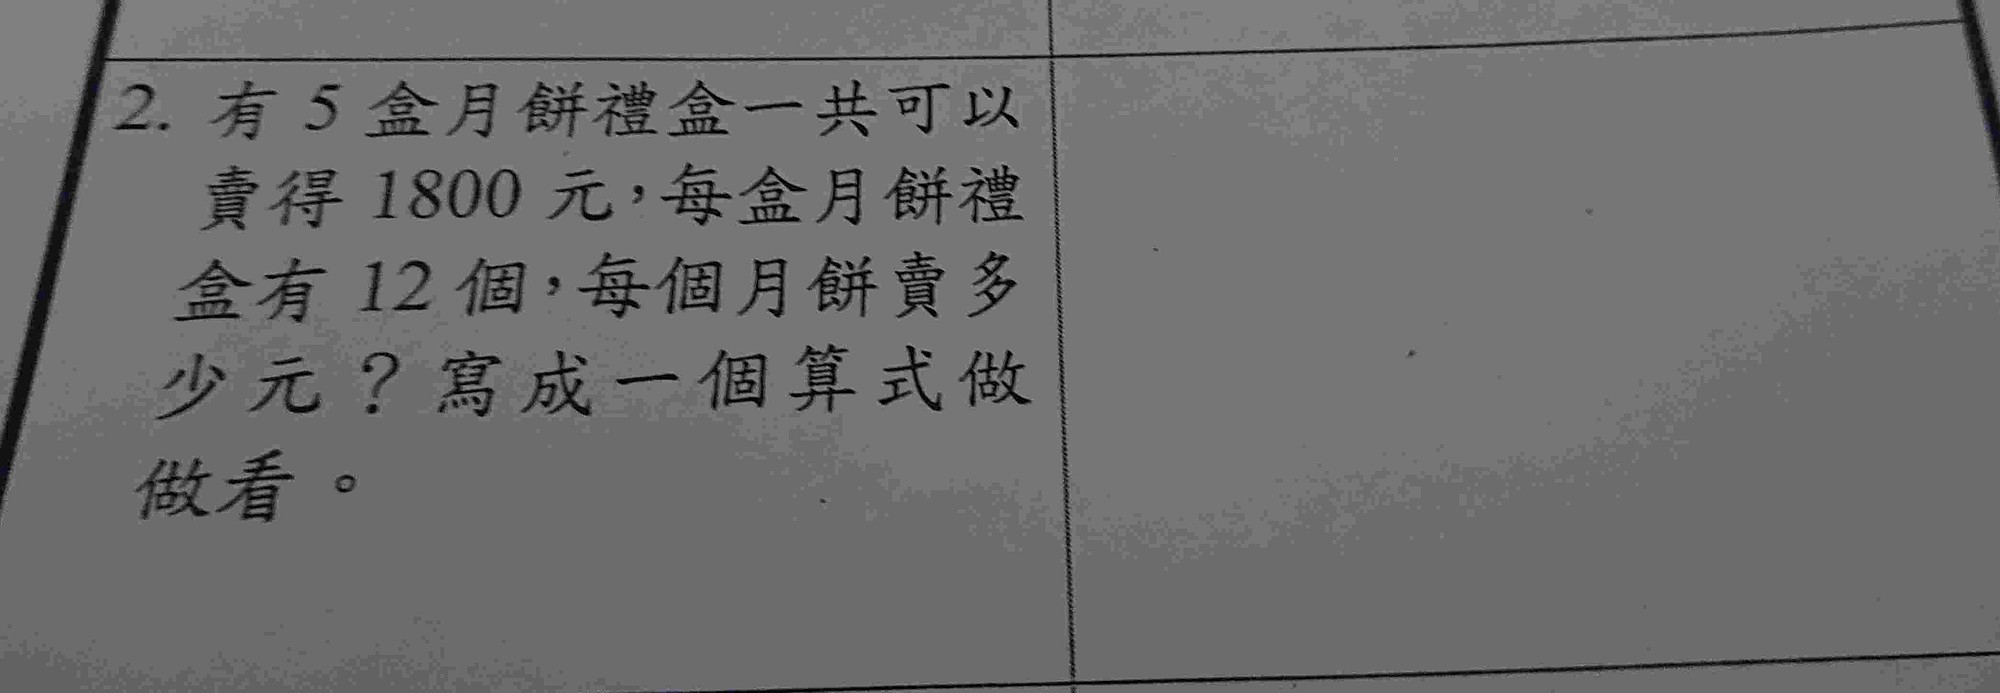 2. 有 5 盒月餅禮盒一共可以
賣得 1800 元，每盒月餅禮
盒有 12 個，每個月餅賣多
少元？寫成一個算式做
做看。